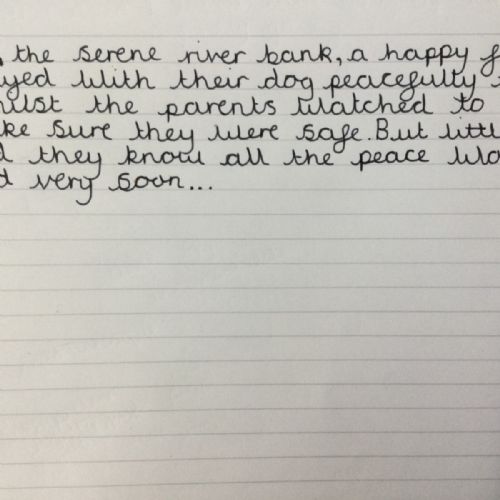 the serene river bank, a happy f
yed with their dog peacefully
hilst the parents watched to
ke sure they were safe. But littl
d they know all the peace wo
d very soon...